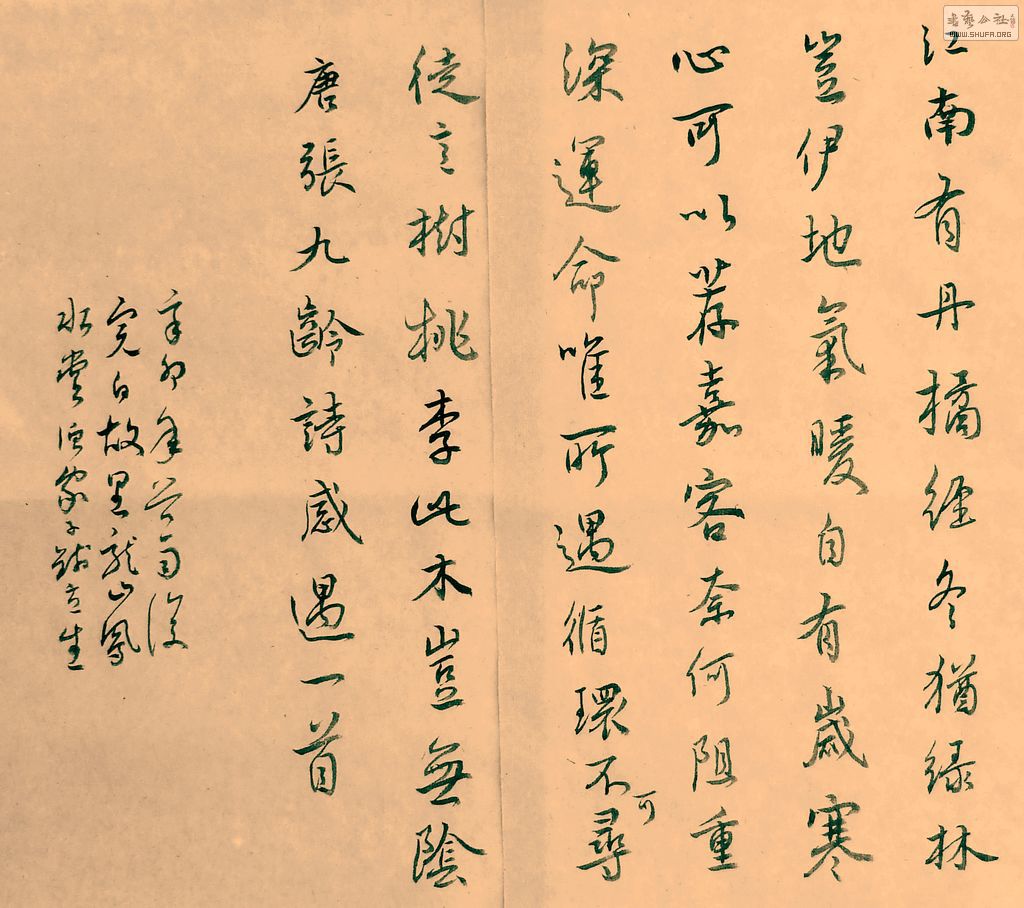 江南有丹橘經冬猶綠林
豈伊地氣暖自有歲寒
心可以荐嘉客奈何阻重
深運命唯所遇循環不可尋
徒言樹桃李此木豈無陰
唐張九齡詩感遇一首
辛卯年
完白故里龍山鳳
水
書藝公社
WWW.SHUFA.ORG